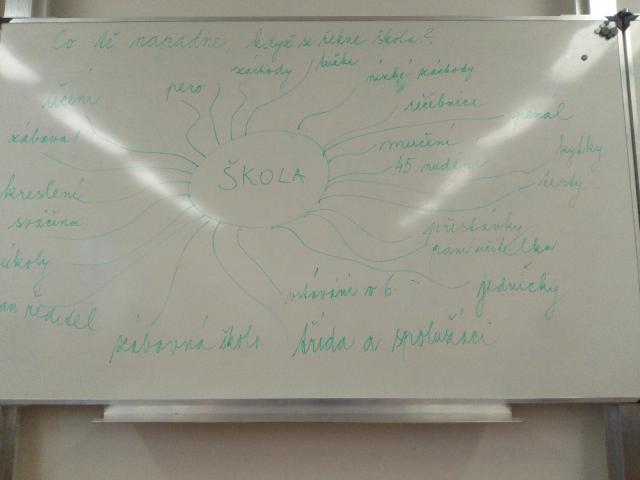 Co tě napadne, když se řekne škola?
záchody
tužka
nízké záchody
učení
pero
učebnice
penál
zábava!
mučení
kytky
45 nudění
ŠKOLA
testy
kreslení
svačina
přestávky
paní učitelka
úkoly
vstávání v 6
jedničky
an ředitel
zábavná škola
třída a spolužáci